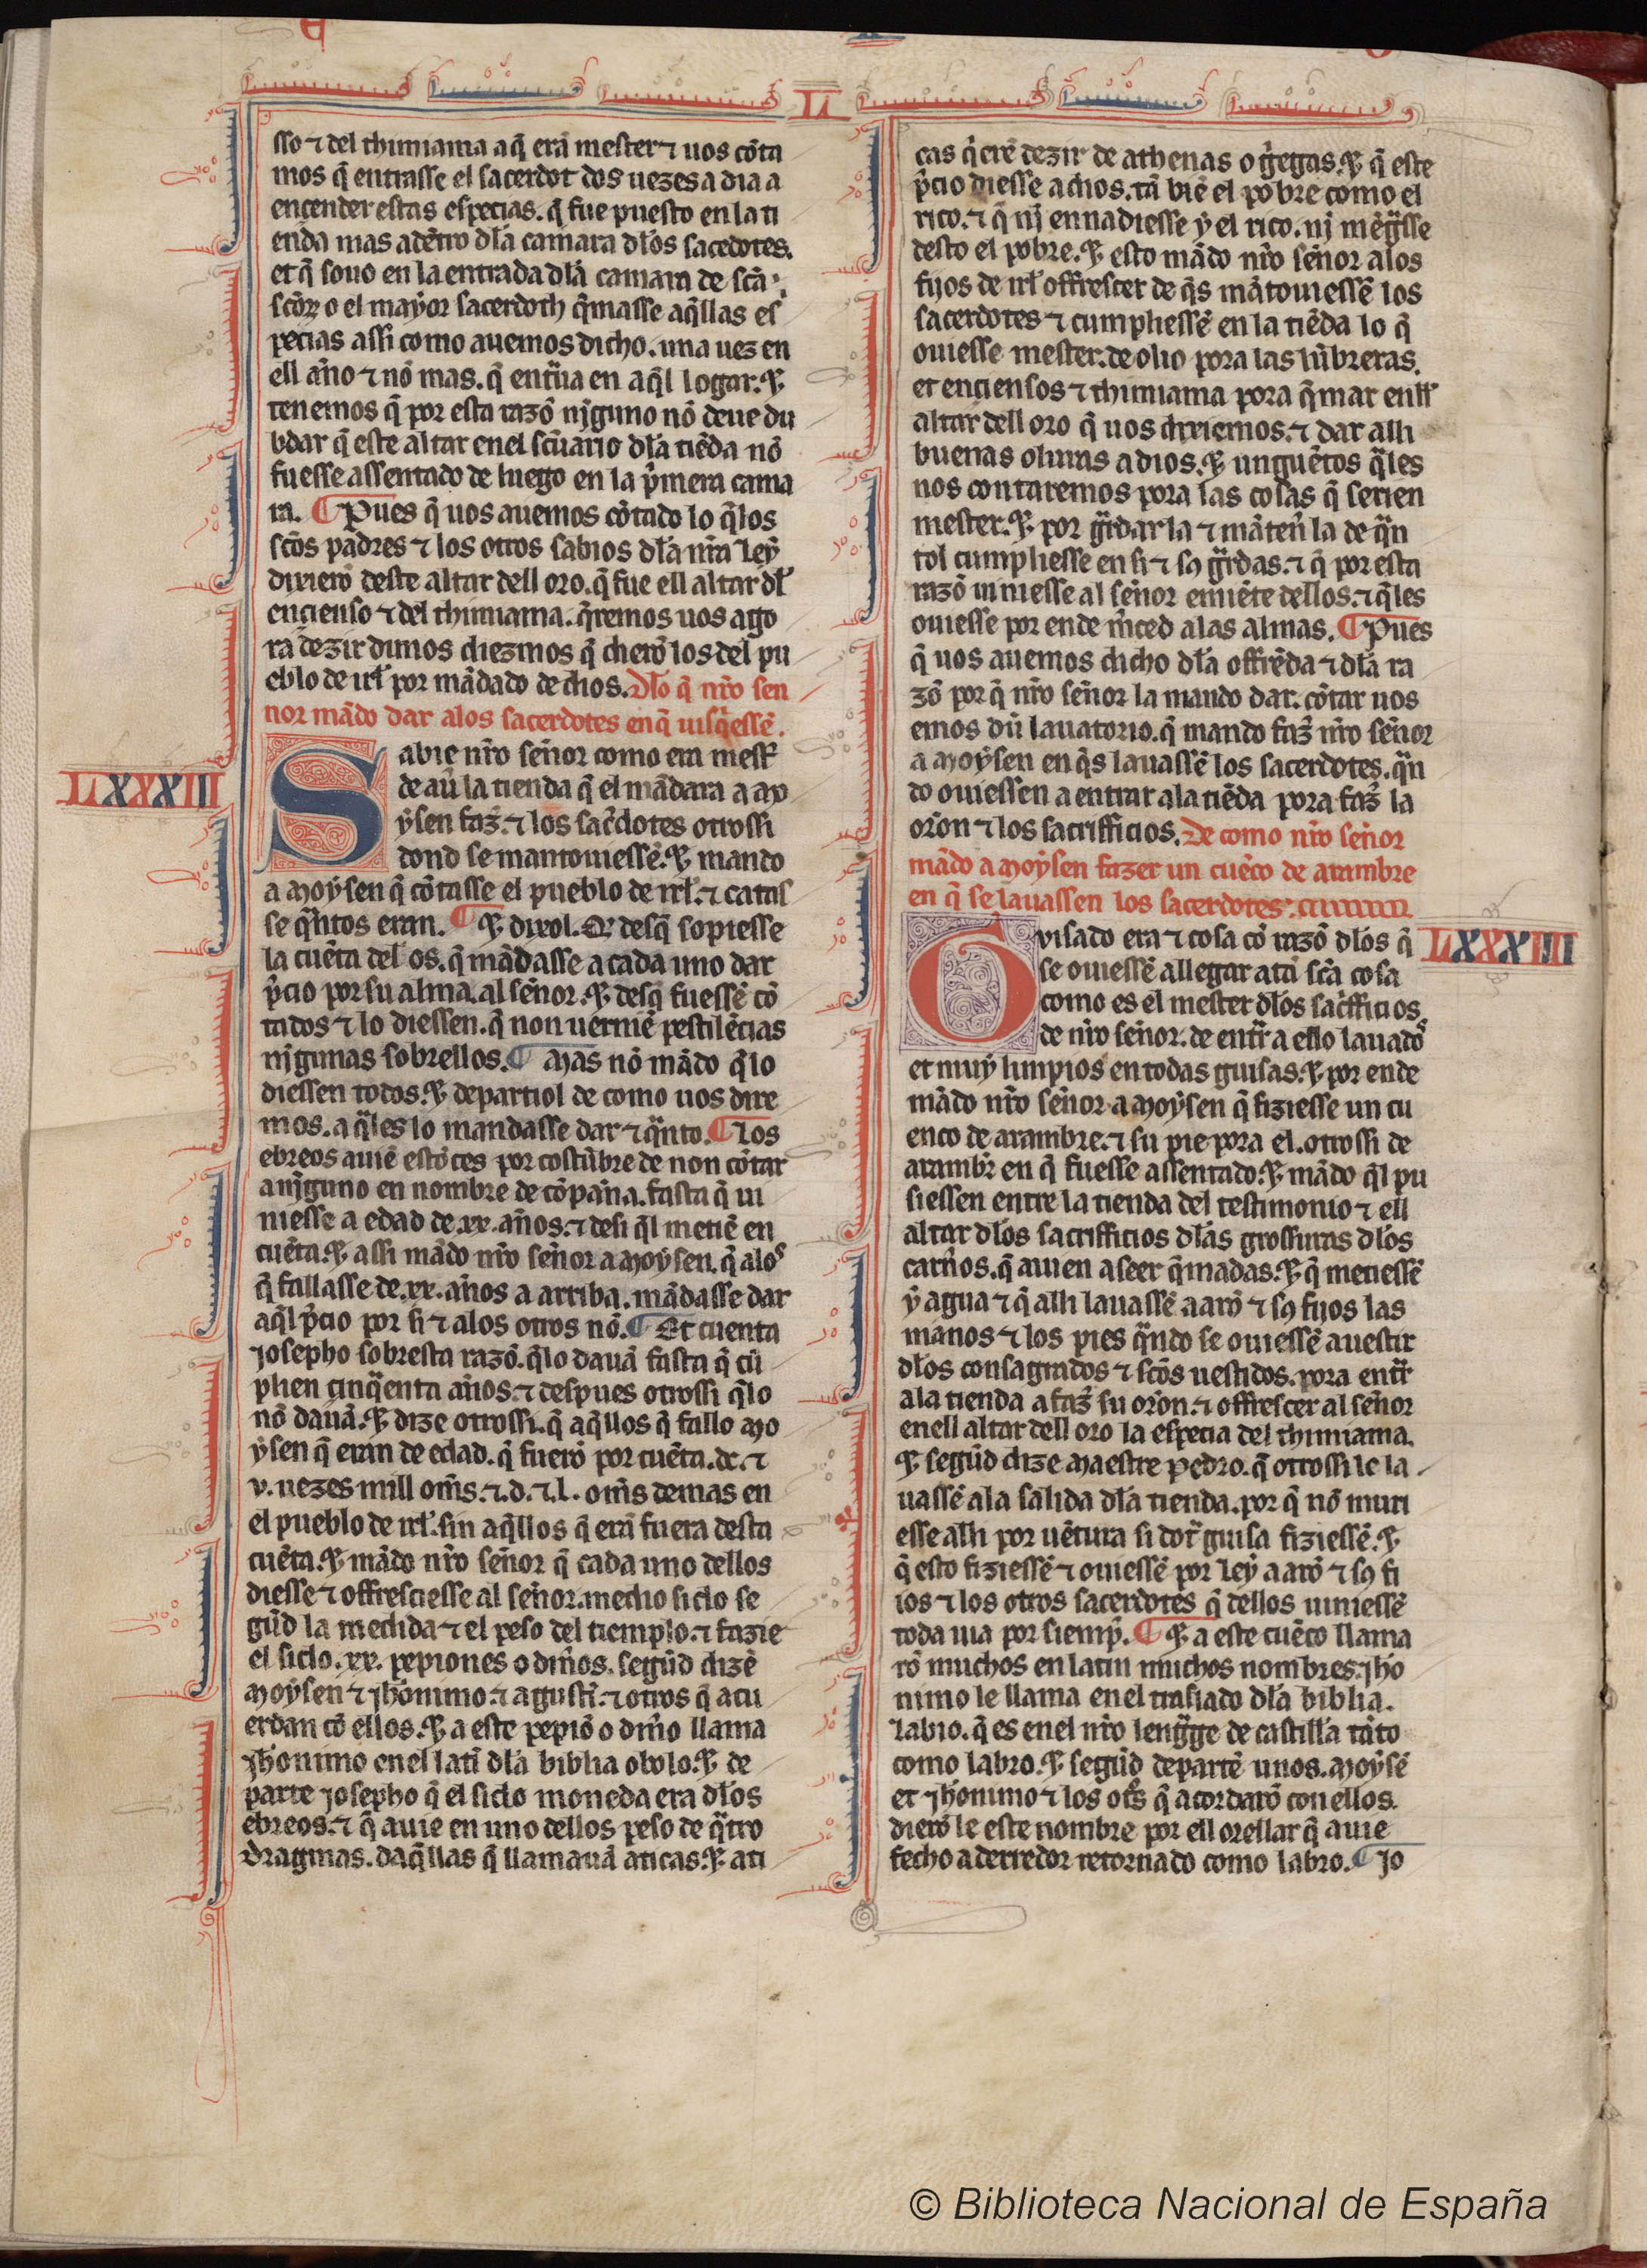 LI
sso ⁊ del thimiama a q̃ erã mester ⁊ uos cõta
mos q̃ entrasse el sacerdot dos uezes a dia a
encender estas especias. q̃ fue puesto en la ti
enda mas adẽtro dl̃a camara dl̃os sacedotes.
et q̃ souo en la entrada dl̃a camara de sc̃a
sc̃oꝝ o el mayor sacerdoth q̃masse aq̃llas es
pecias assi como auemos dicho. una uez en
ell año ⁊ nõ mas. q̃ entᷓua en aq̃l logar. ⁊
tenemos q̃ por esta razõ njguno nõ deue du
bdar q̃ este altar en el sc̃uario dl̃a tiẽda nõ
fuesse assentado de luego en la p̃mera cama
ra. ¶ Pues q̃ uos auemos cõtado lo q̃ los
sc̃os padres ⁊ los otros sabios dl̃a nr̃a Ley
dixierõ deste altar dell oro. q̃ fue ell altar dl̃
encienso ⁊ del thimiama. q̃remos uos ago
ra dezir dunos diezmos q̃ dierõ los del pu
eblo de irl̃ por mãdado de dios. Dl̃o q̃ nr̃o sen
nor mãdo dar alos sacerdotes en q̃ uisq̃essẽ.
LXXXIII
Sabie nr̃o señor como era mest̃
de au̾ la tienda q̃ el mãdara a mo
ysen faz̾. ⁊ los sac̾dotes otrossi
dond se mantouiessẽ. ⁊ mando
a Moysen q̃ cõtasse el pueblo de irl̃. ⁊ catas
se qᷓntos eran. ¶ ⁊ dixol. Q̃ desq̃ sopiesse
la cuẽta del os. q̃ mãdasse a cada uno dar
p̃cio por su alma. al señor. ⁊ desq̃ fuessẽ cõ
tados ⁊ lo diessen. q̃ non uerniẽ pestilẽcias
njgunas sobrellos. ¶ Mas nõ mãdo q̃ lo
diessen todos. ⁊ departiol de como uos dire
mos. a qᷓles lo mandasse dar ⁊ qᷓnto. ¶ Los
ebreos auiẽ estõces por costũbre de non cõtar
a njguno en nombre de cõpaña. fasta q̃ ui
niesse a edad de .xx. años. ⁊ desi q̃l metiẽ en
cuẽta. ⁊ assi mãdo nr̃o señor a Moysen. q̃ alos
q̃ fallasse de .xx. años a arriba. mãdasse dar
aq̃l p̃cio por si ⁊ alos otros nõ. ¶ Et cuenta
Josepho sobresta razõ. q̃ lo dauã fasta q̃ cũ
plien cinqᷓenta años. ⁊ despues otrossi q̃ lo
nõ dauã. ⁊ dize otrossi. q̃ aq̃llos q̃ fallo Mo
ysen q̃ eran de edad. q̃ fuerõ por cuẽta. dc. ⁊
v. uezes mill om̃s. ⁊ .d. ⁊ .l. om̃s demas en
el pueblo de irl̃. sin aq̃llos q̃ erã fuera desta
cuẽta. ⁊ mãdo nr̃o señor q̃ cada uno dellos
diesse ⁊ offresciesse al señor. medio siclo se
gũd la medida ⁊ el peso del tiemplo. ⁊ fazie
el siclo .xx. pepiones o dm̃os. segũd dizẽ
Moysen ⁊ Jh̃onimo. ⁊ agusti̾. ⁊ otros q̃ acu
erdan cõ ellos. ⁊ a este pepiõ o dm̃o llama
Jh̃onimo en el latĩ dl̃a biblia obolo. ⁊ de
parte Josepho q̃ el siclo moneda era dl̃os
ebreos. ⁊ q̃ auie en uno dellos peso de qᷓtro
dragmas. daq̃llas q̃ llamauã aticas. ⁊ ati
cas q̾erẽ dezir de athenas o g̾egas. ⁊ q̃ este
p̃cio diesse a dios. tã biẽ el pobre como el
rico. ⁊ q̃ nj ennadiesse y el rico. nj mẽgᷓsse
desto el pobre. ⁊ esto mãdo nr̃o señor alos
fijos de irl̃ offrescer de q̃s mãtouiessẽ los
sacerdotes ⁊ cumpliessẽ en la tiẽda lo q̃
ouiesse mester. de olio pora las lũbreras.
et enciensos ⁊ thimiama pora q̃mar enll̃
altar dell oro q̃ uos dixiemos. ⁊ dar alli
buenas oluras a dios. ⁊ unguẽtos qᷓles
nos contaremos pora las cosas q̃ serien
mester. ⁊ por gᷓrdar la ⁊ mãten̾ la de qᷓn
tol cumpliesse en si ⁊ sꝯ gᷓrdas. ⁊ q̃ por esta
razõ uiniesse al señor emiẽte dellos. ⁊ q̃les
ouiesse por ende m̾ced alas almas. ¶ Pues
q̃ uos auemos dicho dl̃a offrẽda ⁊ dl̃a ra
zõ por q̃ nr̃o señor la mando dar. cõtar uos
emos dũ lauatorio. q̃ mando faz̾ nr̃o señor
a Moysen en q̃s lauassẽ los sacerdotes. qᷓn
do ouiessen a entrar ala tiẽda pora faz̾ la
or̃on ⁊ los sacrifficios. De como nr̃o señor
mãdo a Moysen fazer un cuẽco de arambre
en q̃ se lauassen los sacerdotes.
LXXXIIII
Guisado era ⁊ cosa cõ razõ dl̃os q̃
se ouiessẽ allegar a tã sc̃a cosa
como es el mester dl̃os sac̾fficios
de nr̃o señor. de entᷓr a ello lauados
et muy limpios en todas guisas. ⁊ por ende
mãdo nr̃o señor a Moysen q̃ fiziesse un cu
enco de arambre. ⁊ su pie pora el. otrossi de
arambr̾ en q̃ fuesse assentado. ⁊ mãdo q̃l pu
siessen entre la tienda del testimonio ⁊ ell
altar dl̃os sacrifficios dl̃as grossuras dl̃os
carn̾os. q̃ auien a seer q̃madas. ⁊ q̃ metiessẽ
y agua ⁊ q̃ alli lauassẽ aarõ ⁊ sꝯ fijos las
manos ⁊ los pies qᷓndo se ouiessẽ a uestir
dl̃os consagrados ⁊ sc̃os uestidos. pora entᷓr
ala tienda a faz̾ su or̃on. ⁊ offrescer al señor
en ell altar dell oro la especia del thimiama.
⁊ segũd dize Maestre Pedro. q̃ otrossi le la
uassẽ ala salida dl̃a tienda. por q̃ nõ muri
esse alli por uẽtura si dotr̾ guisa fiziessẽ. ⁊
q̃ esto fiziessẽ ⁊ ouiessẽ por Ley aarõ ⁊ sꝯ fi
ios ⁊ los otros sacerdotes q̃ dellos uiniessẽ
toda uia por siemp̃. ¶ ⁊ a este cuẽco llama
rõ muchos en latin muchos nombres. Jh̃o
nimo le llama en el traslado dl̃a biblia.
Labio. q̃ es en el nr̃o lengᷓge de castilla tãto
como labro. ⁊ segũd departẽ unos. Moysẽ
et Jh̃onimo ⁊ los ot̾s q̃ acordarõ con ellos.
dierõ le este nombre por ell orellar q̃ auie
fecho aderredor retornado como labro. ¶ Jo
© Biblioteca Nacional de España